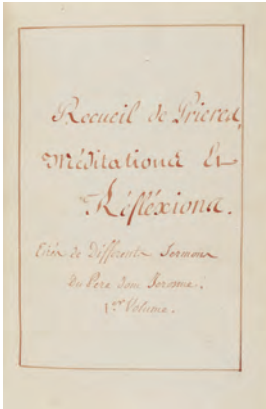 Recueil de Prieres,
Méditations Et
Réfléxions.
Tirés de Differents Sermons
Du Pere Dom Jerosme.
1er Volume.